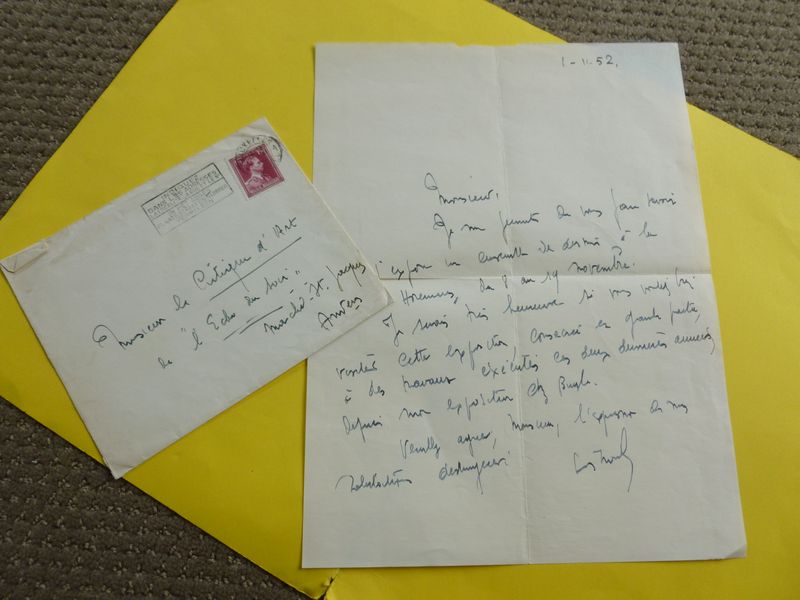 Monsieur le Critique d'Art
de "l'Echo du Soir"
Marché-St. Jacques
Anvers
1-11-52.
Monsieur,
Je me permets de vous faire savoir
j'expose un ensemble de dessins à la
du 8 au 19 novembre.
Je serais très heureuse si vous vouliez
visiter cette exposition, consacrée en grande partie,
à des travaux exécutés ces deux dernières années,
depuis mon exposition chez
Veuillez agréer, Monsieur, l'expression de mes
salutations distinguées.